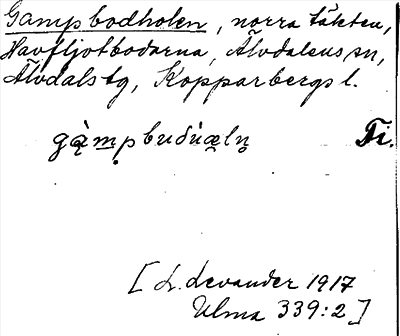 Gampbodholen, norra täkten,
Havfljotbodarna, Älvdalens sn,
Älvdals tg, Kopparbergs l.
gàmpbuðùæln Ti.
[L. Levander 1917
Ulma 339:2]